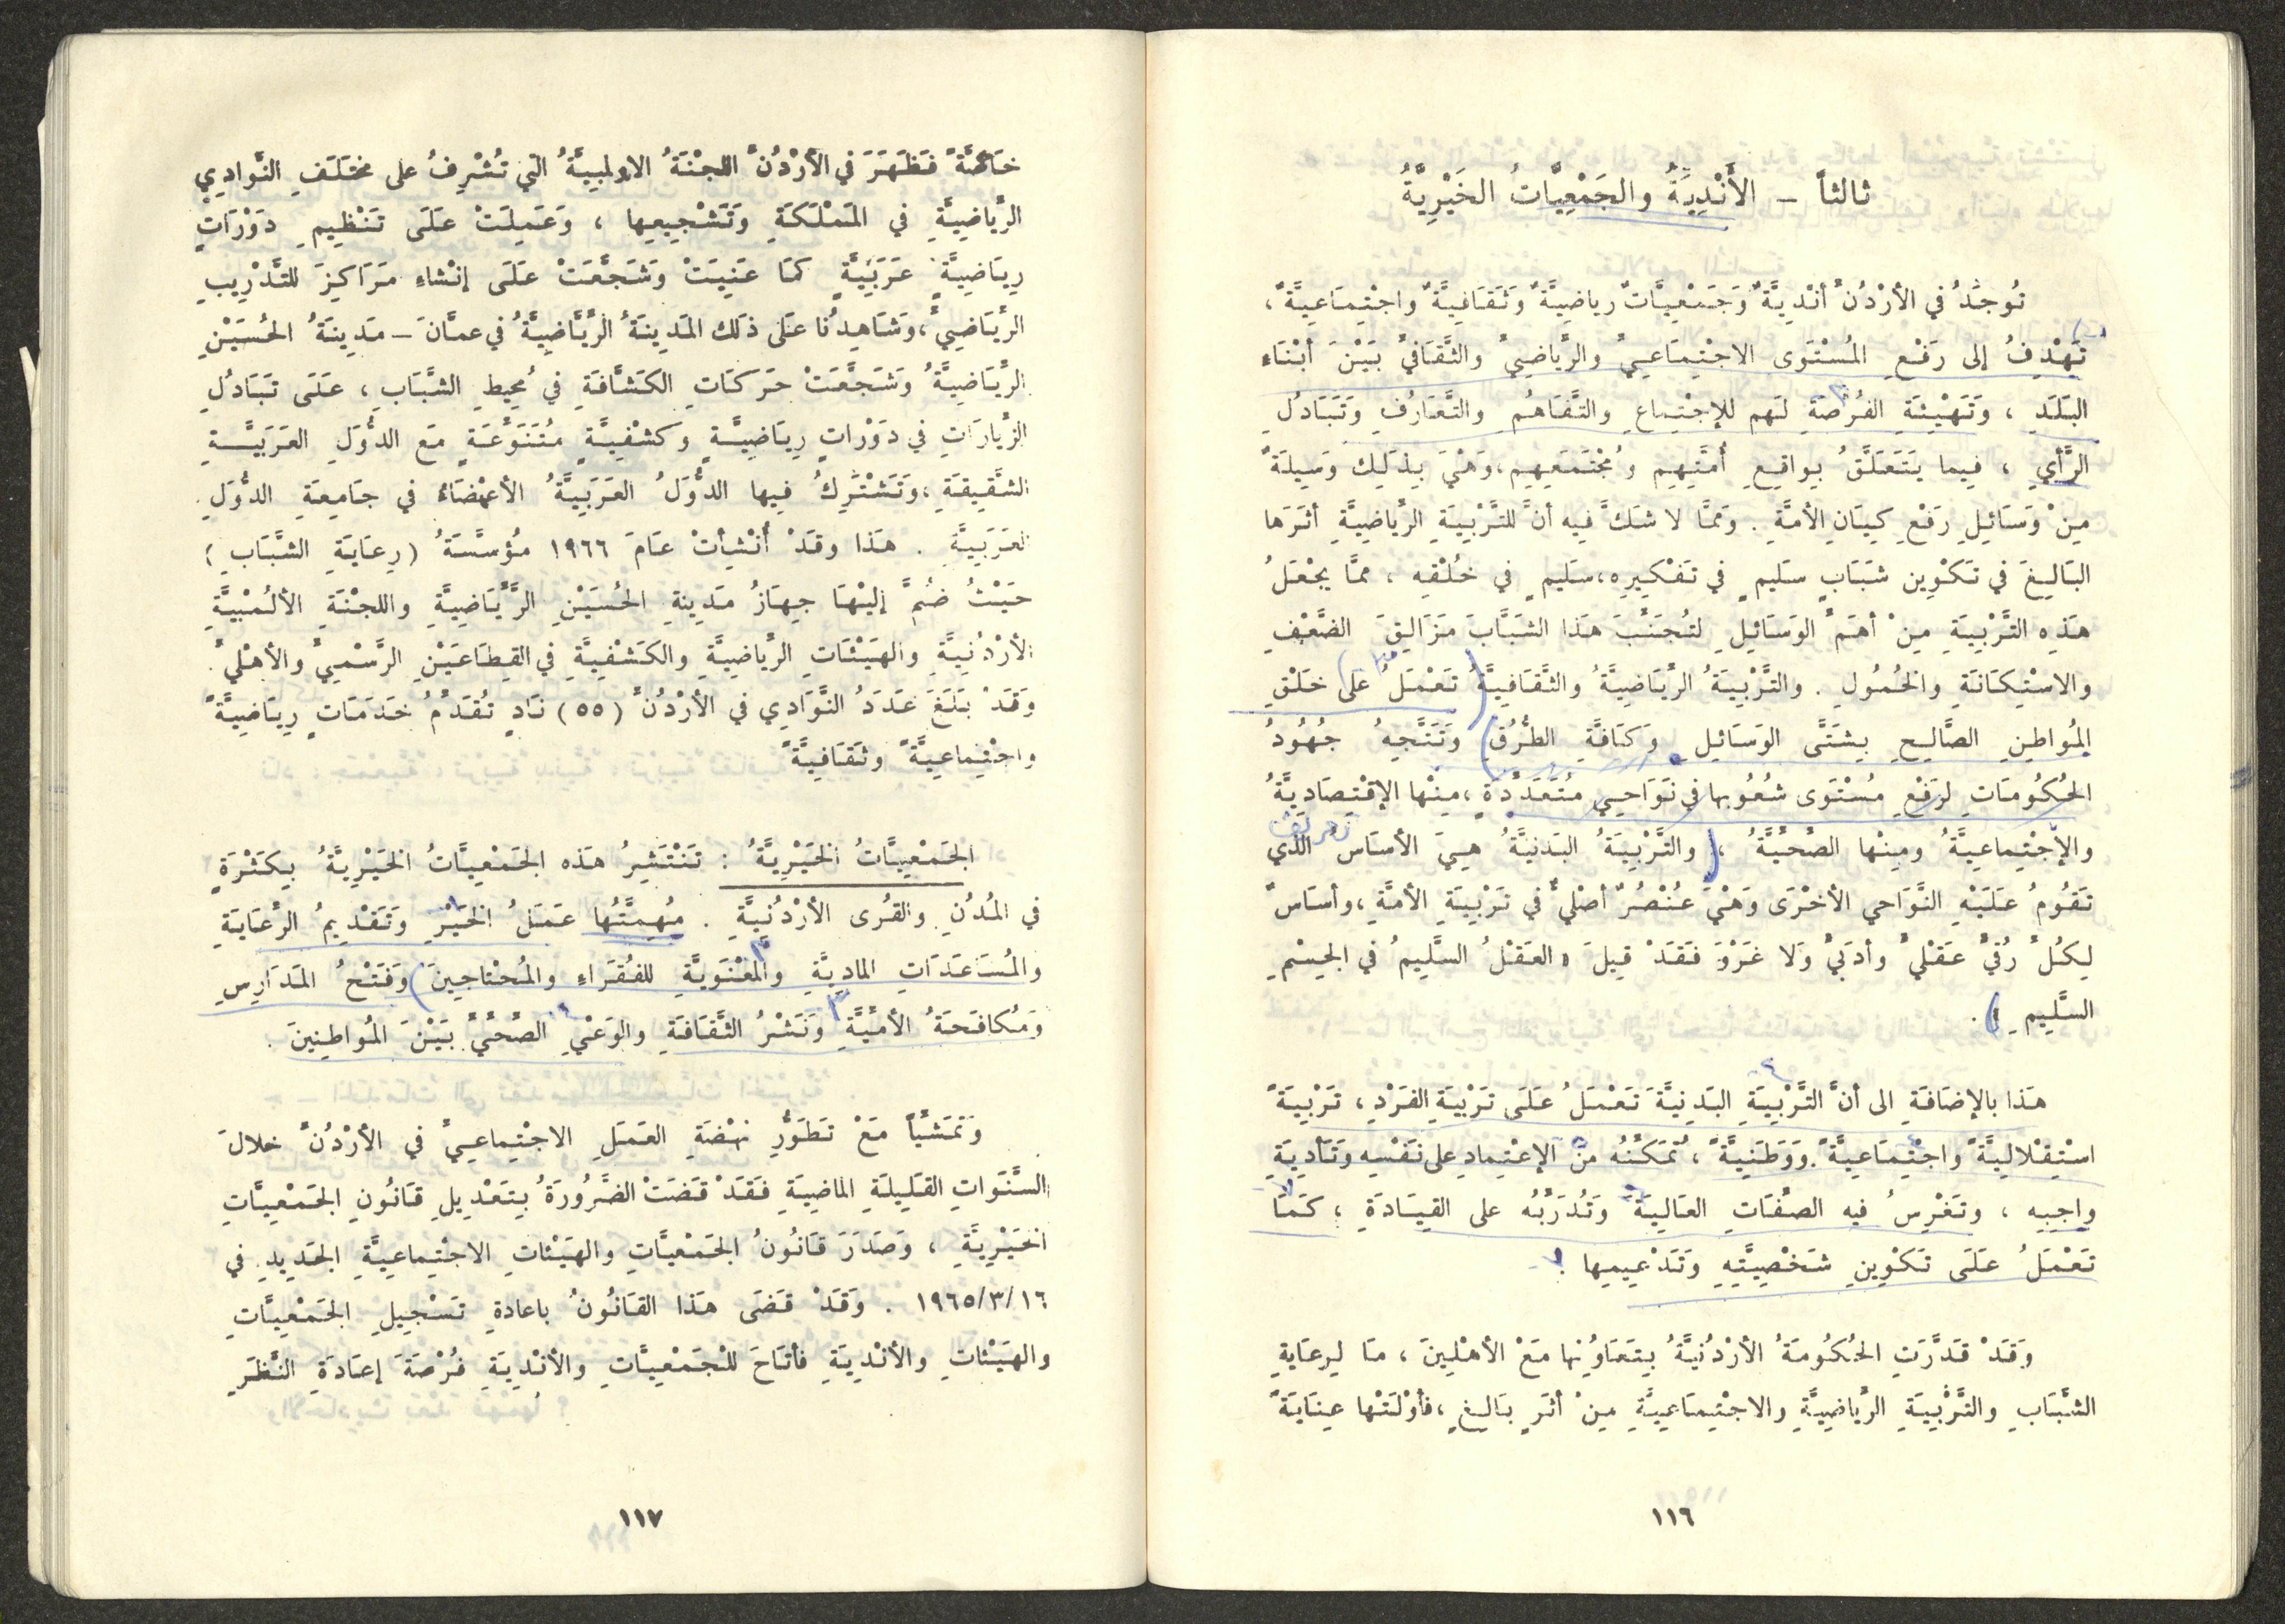 ثالثاً – الأَنْدِيَةُ والجَمْعِيَّاتُ الخَيْرِيَّةُ
تُوجَدُ في الأرْدُنِّ أنْدِيَةٌ وَجَمْعِيَّاتٌ رِياضِيَّةٌ وَثَقَافِيَّةٌ واجْتِمَاعِيَّةٌ،
تَهْدِفُ إلى رَفْعِ المُسْتَوى الاجْتِمَاعِيِّ والرِّياضِيِّ والثَّقَافيِّ بَيْنَ أبْنَاءِ
البَلَدِ ، وَتَهْيِئَةِ الفُرْصَةِ لَهم للإجْتِماعِ والتَّفَاهُمِ والتَّعَارُفِ وَتَبَادُلِ
الرَّأيِ ، فِيما يَتَعَلَّقُ بِواقِعِ أُمَّتِهِم وَمُجْتَمَعِهِم ، وَهْيَ بِذَلِكَ وَسِيلَةٌ
مِنْ وَسَائِلِ رَفْعِ كِيَانِ الأمَّةِ . وَمَّمَا لا شَكَّ فِيه أنَّ للتَّرْبِيَةِ الرِّياضِيَّةِ أثَرَها
البَالِغَ في تَكْوِين شَبَابٍ سَليمٍ في تَفْكِيرِه، سَليمٍ في خُلْقِهِ ، ممَّا يجْعَلُ
هَذِه التَّرْبِيَةِ مِنْ أهَمِّ الوَسَائِلِ لتُجَنِّبَ هَذا الشبَّابَ مَزَالِقَ الضَّعْفِ
والاسْتِكَانَةِ والخُمُولِ . والتَّرْبِيَةُ الرِّيَاضِيَّةُ والثَّقَافِيَّةُ تَعْمَلُ عَلى خَلْقِ
المُواطِنِ الصَّالِحِ بِشَتَّى الوَسَائِلِ وَكَافَّةِ الطُّرُقِ وَتَتَّجِهُ جُهُودُ
الحُكُومَاتِ لرَفْعِ مُسْتَوى شُعُوبها في نَوَاحِي مُتَعَدِّدَةٍ ، مِنْها الإقْتِصَادِيَّةُ
والإجْتِماعِيَّةُ ومِنْها الصِّحِّيَّةُ ، والتَّرْبِيَةُ البَدَنِيَّةُ هِيَ الأسَاسُ الَّذي
تَقُومُ عَلَيْهِ النَّوَاحي الأخْرَى وَهْيَ عُنْصُرٌ أصْليٌّ في تَرْبِيَةِ الأمَّةِ ، وأسَاسٌ
لِكُلِّ رُقيٍّ عَقْليٍّ وأدَبيٍّ وَلا غَرْوَ فَقَدْ قِيلَ « العَقْلُ السَّلِيمُ في الجِسْمِ
السَّلِيمِ » .
هَذا بالإضَافَةِ الى أنَّ التَّرْبِيَةِ البَدَنِيَّةَ تَعْمَلُ عَلَى تَرْبِيَةِ الفَرْدِ ، تَرْبِيَةً
اسْتِقْلالِيَّةً واجْتِمَاعِيَّةً. وَوَطَنِيَّةً ، تُمَكِّنُهُ مِنَ الإعْتِمادِ على نَفْسِه وَتَأدِيَةِ
واجِبِه ، وتَغْرِسُ فيه الصِّفَاتِ العَالِيَةَ وَتُدَرِّبُه على القِيَادَةِ ؛ كَمَا
تَعْمَلُ عَلَى تَكْوِينِ شَخْصِيَّتِهِ وَتَدْعِيمِها .
وَقَدْ قَدَّرَتِ الحُكُومَةُ الأرْدُنِيَّةُ بِتَعَاوُنِها مَعْ الأهْلِينَ ، مَا لِرِعَايَةِ
الشَّبَابِ والتَّرْبِيَةِ الرِّياضِيَّةِ والاجْتِمَاعِيَّةِ مِنْ أثَرٍ بَالِغٍ ، فأوْلَتْها عِنَايَةً
١١٦
خَاصَّةً فَظَهَرَ في الأرْدُنِّ اللجْنَةُ الاولمبِيَّةُ التي تُشْرِفُ على مختَلَفِ النَّوادِي
الرِّياضِيَّةِ في المَمْلَكَةِ وَتَشْجِيعِها ، وَعَمِلَتْ عَلَى تَنْظِيمِ دَوْرَاتٍ
رِيَاضِيَّةٍ عَرَبِيَّةٍ كمَا عَنِيَتْ وَشَجَّعَتْ عَلَى إنْشاءِ مَرَاكِزَ للتَّدْرِيبِ
الرِّيَاضِيِّ ، وَشَاهِدُنا عَلى ذلك المَدِينَةُ الرِّيَاضِيَّةُ في عمَّانَ – مَدِينَةُ الحُسَيْنِ
الرِّيَاضِيَّةُ وَشَجَّعَتْ حَرَكَاتِ الكَشَّافَةِ في مُحِيطِ الشَّبَابِ ، عَلَى تَبَادُلِ
الزِّيارَاتِ في دَوْراتٍ رِيَاضِيَّةٍ وكَشْفِيَّةٍ مُتَنَوِّعَةٍ مَعِ الدُّوَلِ العَرَبِيَّةِ
الشَّقِيقَةِ ، وَتَشْتَرِكُ فِيها الدُّوَلُ العَرَبِيَّةُ الأعْضَاءُ في جَامِعَةِ الدُّوَلِ
العَرَبِيَّةِ . هَذا وقَدْ أُنْشِأتْ عَامَ ١٩٦٦ مُؤسَّسَةُ (رِعَايَةِ الشَّبَابِ)
حَيْثُ ضُمَّ إليْهَا جِهَازُ مَدِينةِ الحُسَيْنِ الرِّيَاضِيَّةِ واللجْنَةِ الألُمْبِيَّةِ
الأرْدُنِيَّةِ والهَيْئَاتِ الرِّياضِيَّةِ والكَشْفِيَّةِ في القِطَاعَيْنِ الرَّسْمِيِّ والأهْليِّ .
وَقَدْ بَلَغَ عَدَدُ النَّوَادِي في الأرْدُنِّ (٥٥) نَادٍ تُقَدِّمُ خَدَمَاتٍ رِيَاضِيَّةً
واجْتِماعِيَّةً وثَقَافِيَّةً
الجَمْعِيَّاتُ الخَيْرِيَّةُ : تَنْتَشِرُ هَذه الجَمْعِيَّاتُ الخَيْرِيَّةُ بِكَثْرَةٍ
في المُدُنِ والقُرى الأرْدُنِيَّةِ . مُهِمَّتُها عَمَلُ الخَيْرِ وَتَقْدِيمُ الرِّعَايَةِ
والمُسَاعَدَاتِ المادِيَّةِ والمَعْنَوِيَّةِ للفُقَرَاءِ والمُحْتاجِينَ وَفَتْحُ المَدَارِسِ
وَمُكافَحَةُ الأمِّيَّةِ وَنَشْرُ الثَّقَافَةِ والوَعْيِ الصِّحِّيِّ بَيْنَ المُواطِنِينَ .
وَتَمَشِّيّاً مَعْ تَطَوُّرِ نهْضَةِ العَمَلِ الاجْتِماعِيِّ في الأرْدُنِّ خلالَ
السَّنَوَاتِ القَلِيلَةِ الماضِيَةِ فَقَدْ قَضَتْ الضَّرُورَةُ بِتَعْدِيلِ قَانُونِ الجَمْعِيَّاتِ
الخَيْرِيَّةِ ، وَصَدَرَ قَانُونُ الجَمْعِيَّاتِ والهَيْئاتِ الاجْتِماعِيَّةِ الجَدِيدِ في
١٩٦٥/٣/١٦ . وَقَدْ قَضَى هَذا القَانُونُ باعادةِ تَسْجِيلِ الجَمْعِيَّاتِ
والهَيْئاتِ والأنْدِيَةِ فأتَاحَ للْجَمْعِيَّاتِ والأنْدِيَةِ فُرْصَةَ إعَادَةِ النَّظَرِ
١١٧